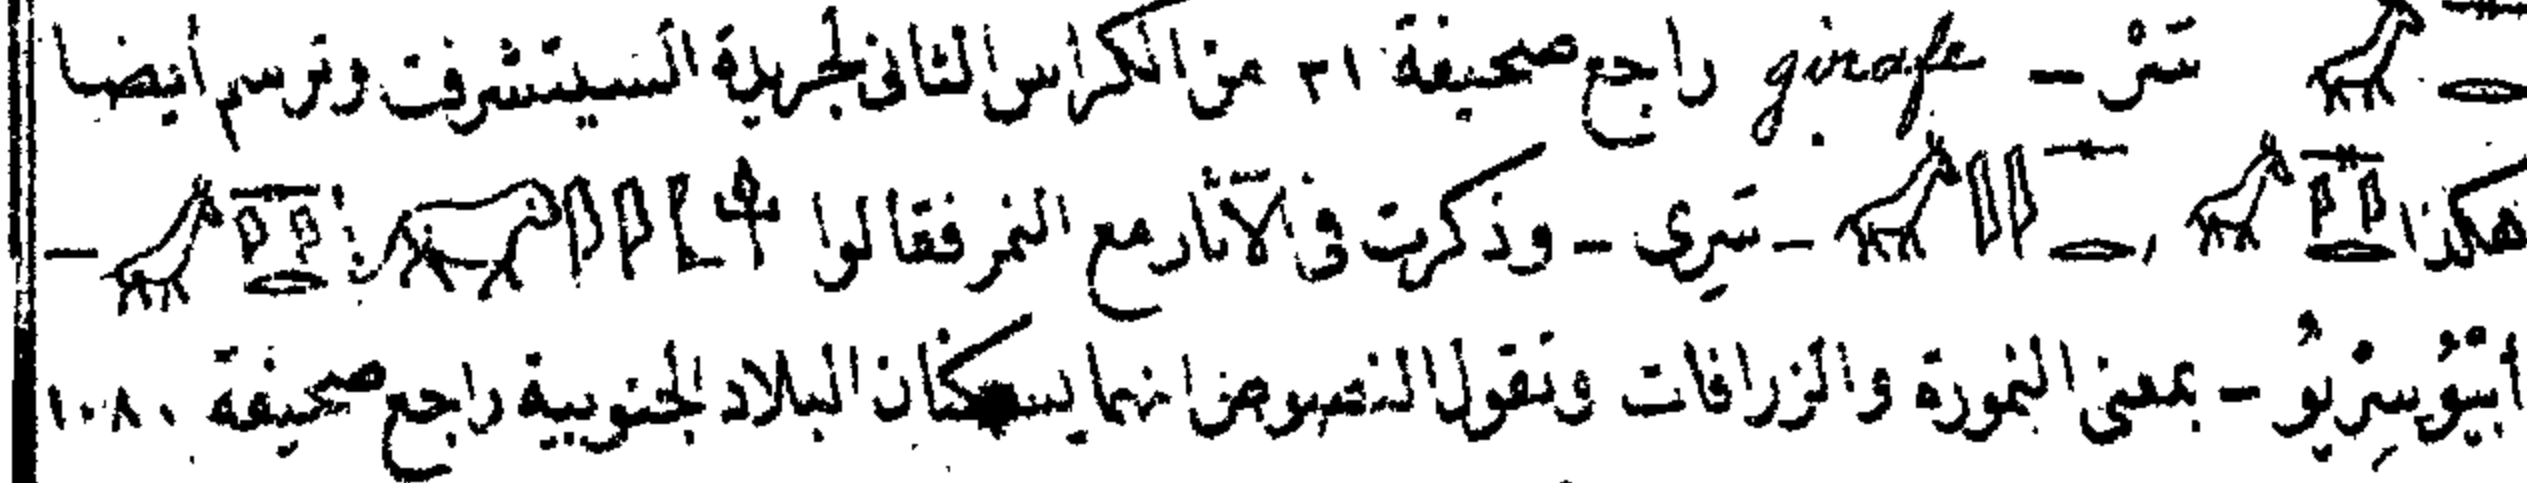 سَرْ - girafe راجع صحيفة ٣١ من الكراس الثانى لجريدة السيتشرفت وترسم أيضا
هكذا 𓋴𓇋𓇋𓂋 , 𓋴𓂋𓇋𓇋 - سَرِى - وذكرت فى الآثار مع النمر فقالوا -
أَبْيُوسِرْيُو - بمعنى النمورة والزرافات وتقول النصوص انهما يسكنان البلاد الجنوبية راجع صحيفة ١٠٨٠